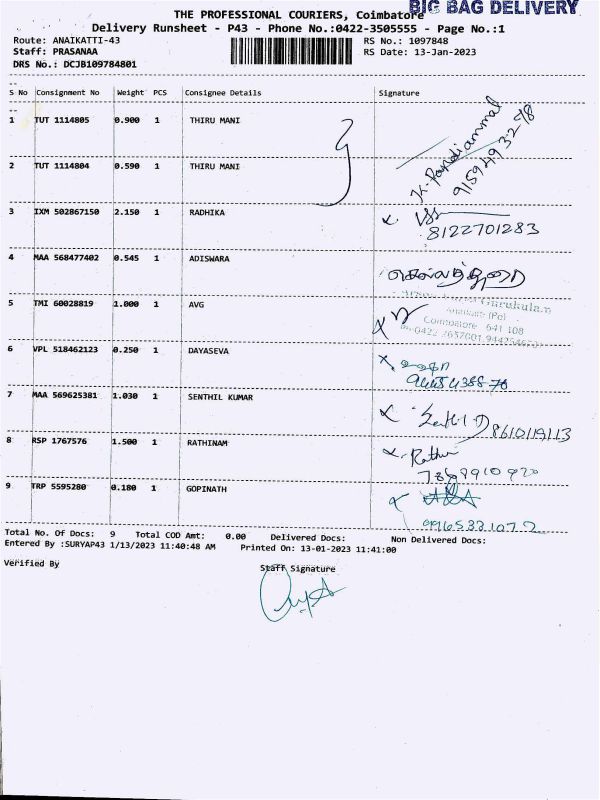 BIG BAG DELIVERY
THE PROFESSIONAL COURIERS, Coimbatore
Delivery Runsheet - P43 - Phone No.:0422-3505555 - Page No.:1
Route: ANAIKATTI-43 RS No.: 1097848
Staff: PRASANAA RS Date: 13-Jan-2023
DRS No.: DCJB109784801
S No Consignment No Weight PCS Consignee Details Signature
1 TUT 1114805 0.900 1 THIRU MANI
K. Pandiammal
9159493298
2 TUT 1114804 0.590 1 THIRU MANI
3 IXM 502867150 2.150 1 RADHIKA
8122701283
4 MAA 568477402 0.545 1 ADISWARA
5 TMI 60028819 1.000 1 AVG
Gurukulam
Coimbatore 641 108
6 VPL 518462123 0.250 1 DAYASEVA
7 MAA 569625381 1.030 1 SENTHIL KUMAR
8610119113
8 RSP 1767576 1.500 1 RATHINAM
9 TRP 5595280 0.180 1 GOPINATH
Total No. Of Docs: 9 Total COD Amt: 0.00 Delivered Docs: Non Delivered Docs:
Entered By :SURYAP43 1/13/2023 11:40:48 AM Printed On: 13-01-2023 11:41:00
Verified By Staff Signature